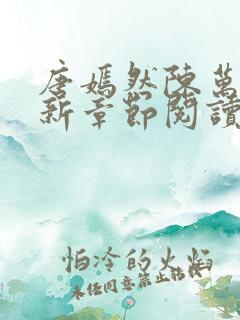 唐嫣然陳萬
新章節閱讀
怕冷的火焰
未經同意禁止轉載